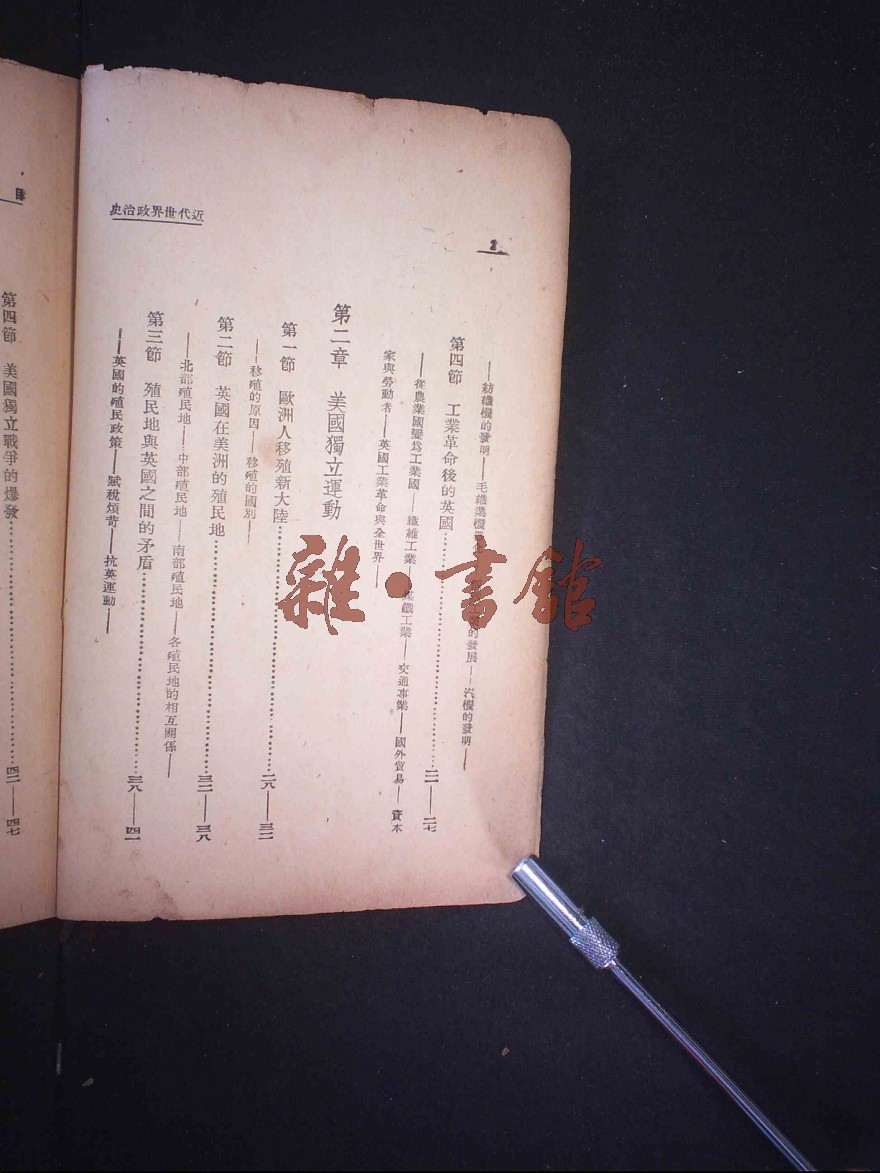 近代世界政治史
2
——紡織機的發明——毛織業機 的發展——汽機的發明——
第四節 工業革命後的英國…………二一——二七
——從農業國變爲工業國——纖維工業 煤鐵工業——交通事業——國外貿易——資本
家與勞動者——英國工業革命與全世界——
第二章 美國獨立運動
第一節 歐洲人移殖新大陸…………二八——三二
——移殖的原因——移殖的國別——
第二節 英國在美洲的殖民地…………三二——三八
——北部殖民地——中部殖民地——南部殖民地——各殖民地的相互關係——
第三節 殖民地與英國之間的矛盾…………三八——四一
——英國的殖民政策——賦稅煩苛——抗英運動——
目
第四節 美國獨立戰爭的爆發…………四二——四七
雜·書館